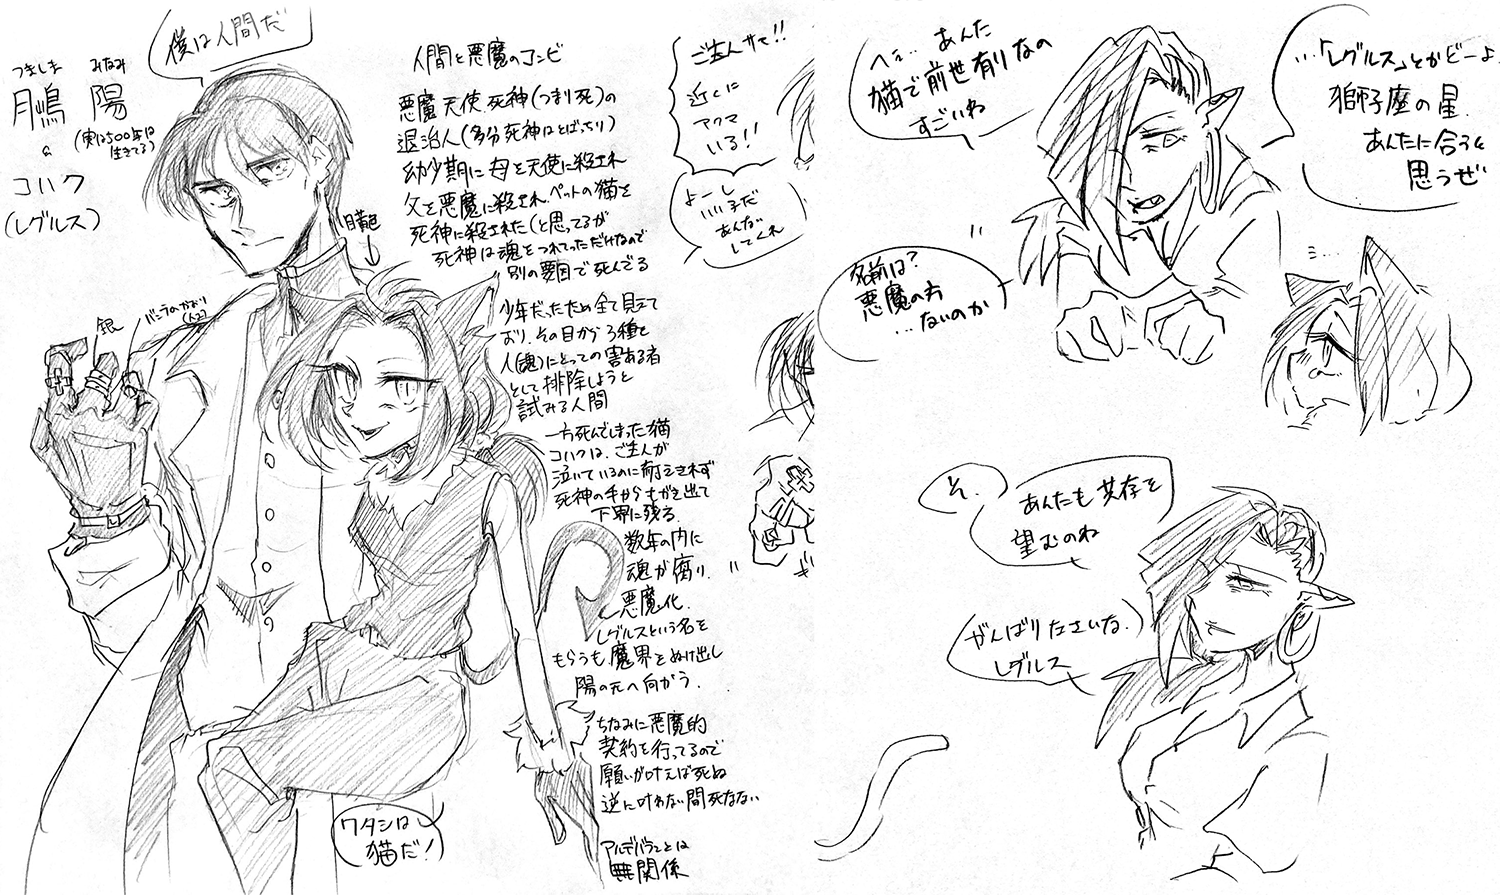 僕は人間だ
つきしま みなみ
月嶋 陽
(実は500年は
生きてる)
&
コハク
(レグルス)
目黄色
銀
バニラのかおり
人間と悪魔のコンビ
悪魔、天使、死神(つまり死)の
退治人(多分死神はとばっちり)
幼少期に母を天使に殺され
父を悪魔に殺され、ペットの猫を
死神に殺された(と思ってるが
死神は魂をつれてっただけなので
別の要因で死んでる
少年だったため全て見えて
おり、その日から3種を
人(魂)にとっての害ある者
として排除しようと
試みる人間
一方死んでしまった猫
コハクは、ご主人が
泣いているのに耐えきれず
死神の手からもがき出て
下界に残る。
数年の内に
魂が腐り、
悪魔化。
レグルスという名を
もらうも魔界をぬけ出し
陽の元へ向かう。
ちなみに悪魔的
契約を行ってるので
願いが叶えば死ぬ
逆に叶わない間死なない
アルデバランとは
無関係
ワタシは
猫だ!
ご主人サマ!!
近くに
アクマ
いる!!
よーし
いい子だ
あんない
してくれ
へぇ…あんた
猫で前世有りなの
すごいわ
…「レグルス」とかどーよ
獅子座の星。
あんたに合うと
思うぜ
名前は?
悪魔の方
…ないのか
そ。
あんたも共存を
望むのね
がんばりなさいな。
レグルス